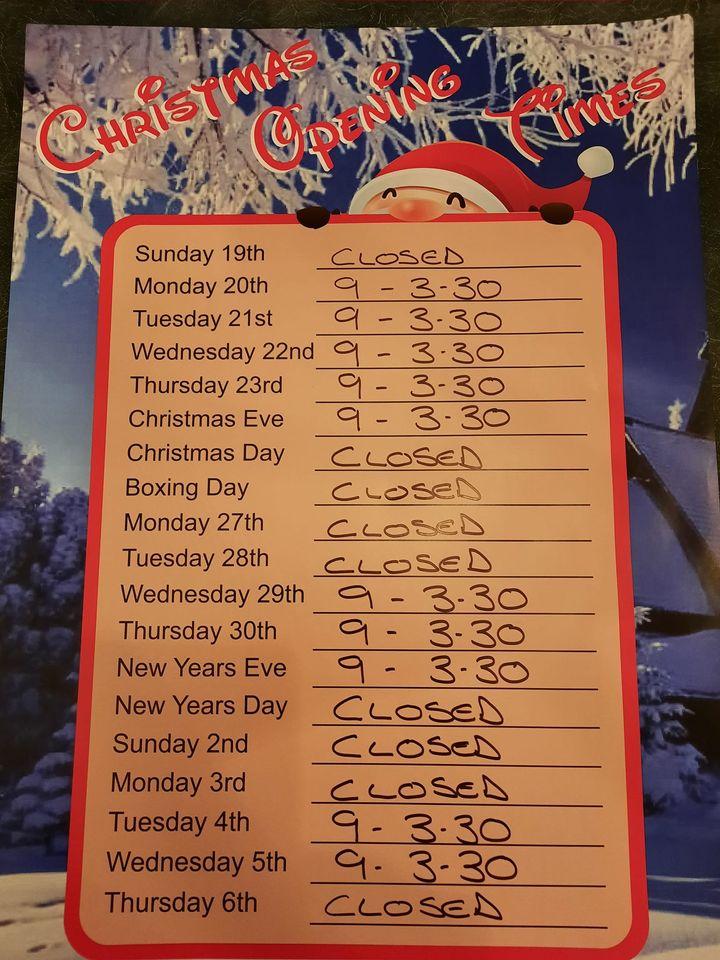 Christmas Opening Times
Sunday 19th CLOSED
Monday 20th 9 - 3.30
Tuesday 21st 9 - 3.30
Wednesday 22nd 9 - 3.30
Thursday 23rd 9 - 3.30
Christmas Eve 9 - 3.30
Christmas Day CLOSED
Boxing Day CLOSED
Monday 27th CLOSED
Tuesday 28th CLOSED
Wednesday 29th 9 - 3.30
Thursday 30th 9 - 3.30
New Years Eve 9 - 3.30
New Years Day CLOSED
Sunday 2nd CLOSED
Monday 3rd CLOSED
Tuesday 4th 9 - 3.30
Wednesday 5th 9 - 3.30
Thursday 6th CLOSED